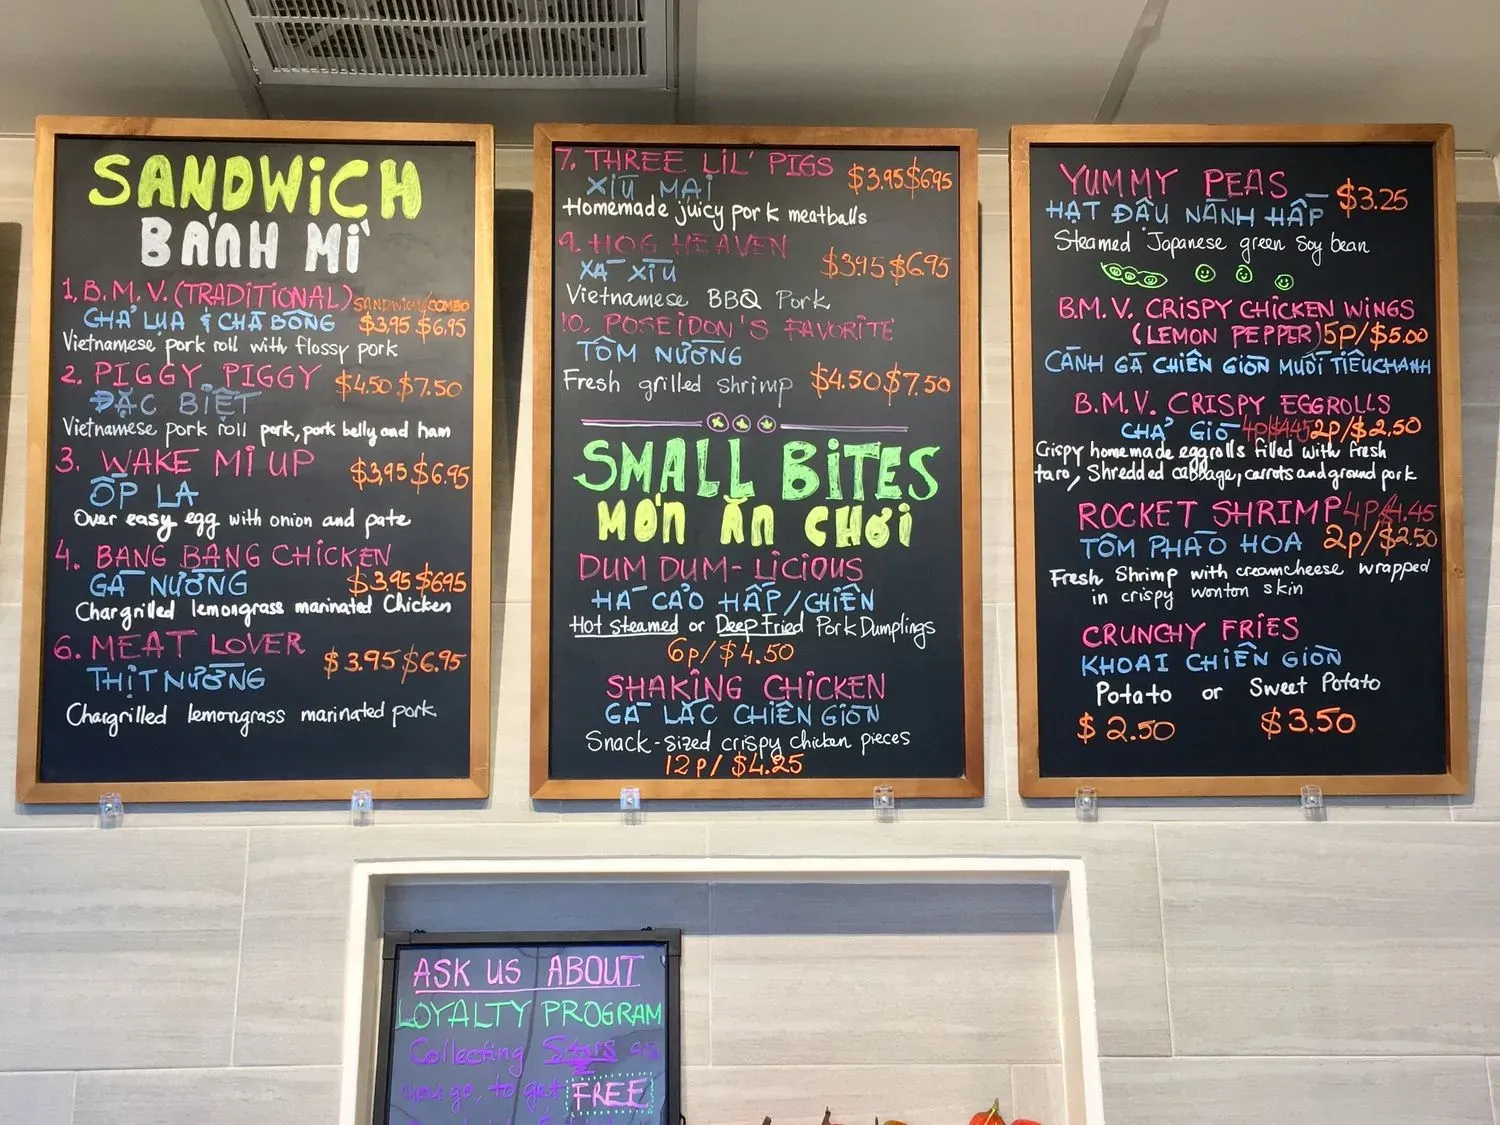 SANDWiCH
BÁNH MÌ
1. B.M.V. (TRADITIONAL) SANDWICH/COMBO
CHẢ LỤA & CHÀ BÔNG $3.95 $6.95
Vietnamese pork roll with flossy pork
2. PIGGY PIGGY $4.50 $7.50
ĐẶC BIỆT
Vietnamese pork roll pork, pork belly and ham
3. WAKE MI UP $3.95 $6.95
ỐP LA
Over easy egg with onion and pate
4. BANG BANG CHICKEN
GÀ NƯỚNG $3.95 $6.95
Chargrilled lemongrass marinated Chicken
6. MEAT LOVER $3.95 $6.95
THỊT NƯỚNG
Chargrilled lemongrass marinated pork
7. THREE LiL' PIGS $3.95 $6.95
XÍU MẠI
Homemade juicy pork meatballs
9. HOG HEAVEN $3.95 $6.95
XÁ XÍU
Vietnamese BBQ Pork
10. POSEIDON'S FAVORITE
TÔM NƯỚNG
Fresh grilled shrimp $4.50 $7.50
SMALL BiTES
MÓN ĂN CHơi
DUM DUM-LICIOUS
HÁ CẢO HẤP/CHIÊN
Hot Steamed or Deep Fried Pork Dumplings
6p/$4.50
SHAKiNG CHICKEN
GÀ LẮC CHIÊN GIÒN
Snack-sized crispy chicken pieces
12P/ $4.25
YUMMY PEAS $3.25
HẠT ĐẬU NÀNH HẤP
Steamed Japanese green Soy bean
B.M.V. CRiSPY CHiCKEN WiNGS
(LEMON PEPPER) 5p/$5.00
CÁNH GÀ CHIÊN GIÒN MUỐI TIÊU CHANH
B.M.V. CRISPY EGGROLLS
CHẢ GIÒ 4p/$4.45 2p/$2.50
Crispy homemade eggrolls filled with fresh
taro, Shredded cabbage, carrots and ground pork
ROCKET SHRIMP 4P/$4.45
TÔM PHÁO HOA 2p/$2.50
Fresh Shrimp with creamcheese wrapped
in crispy wonton skin
CRUNCHY FRiES
KHOAI CHIÊN GIÒN
Potato or Sweet Potato
$2.50 $3.50
ASK US ABOUT
LOYALTY PROGRAM
Collecting Stars as
you go, to get FREE